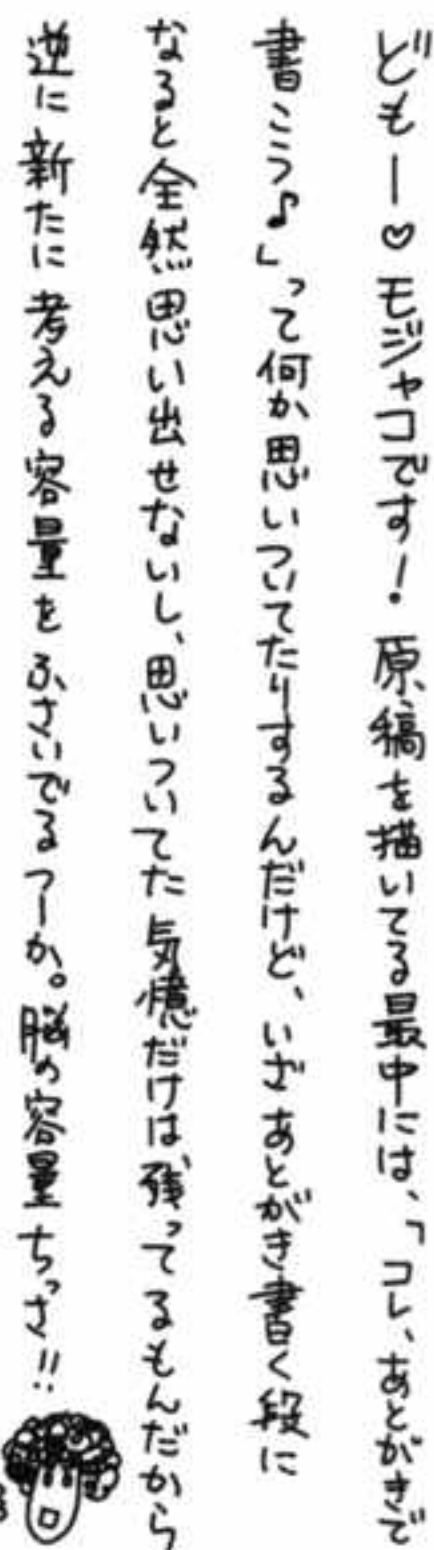 どもー♡モジャコです！原稿を描いてる最中には、「コレ、あとがきで
書こう♪」って何か思いついてたりするんだけど、いざあとがき書く段に
なると全然思い出せないし、思いついてた気憶だけは残ってるもんだから
逆に新たに考える容量をふさいでるつーか。脳の容量ちっさ!!